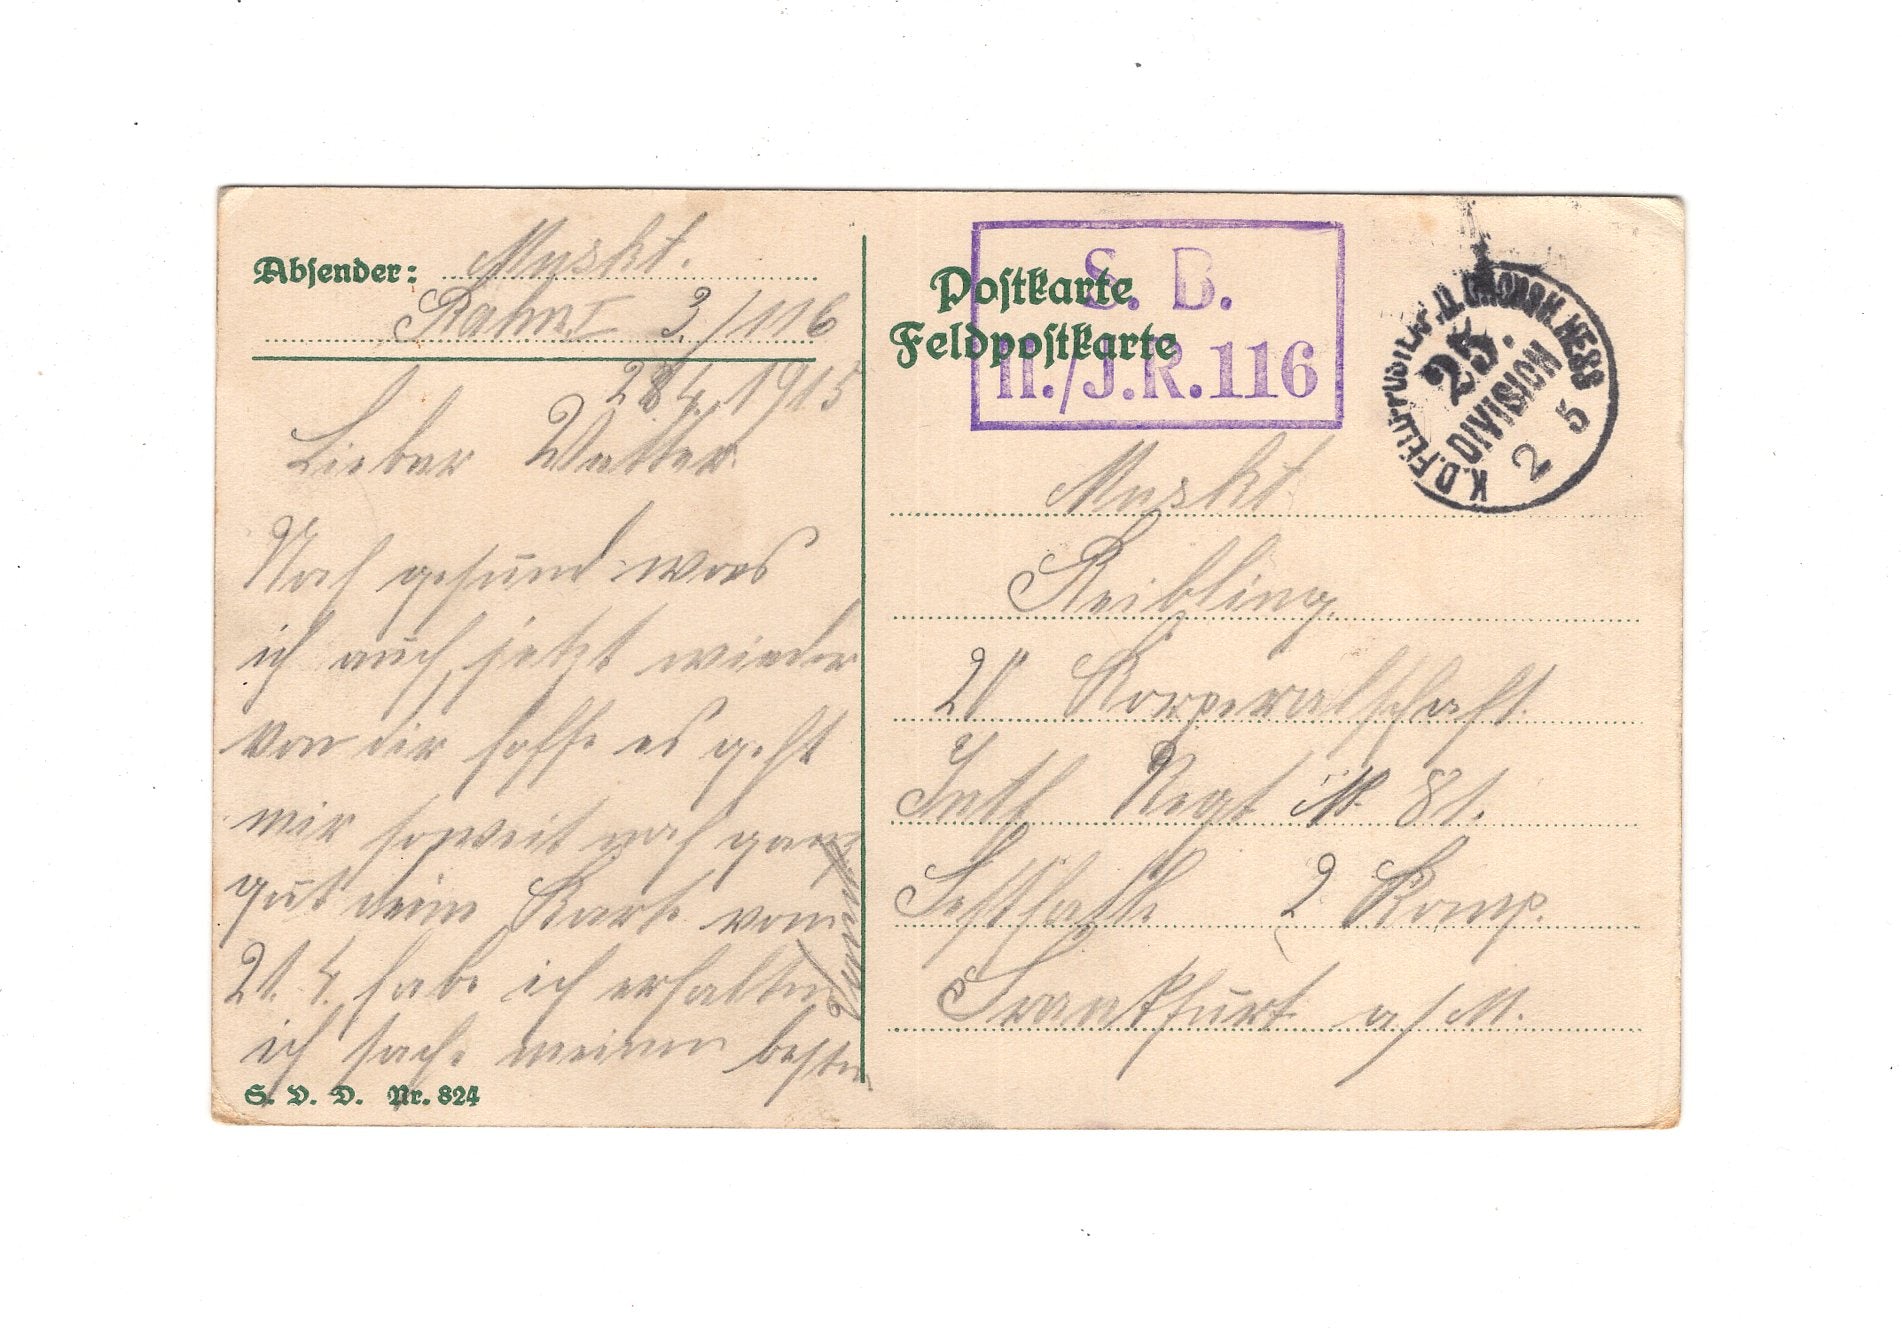 Absender: Muskt.
Rahn I 3./116
28.4.1915
Lieber Vetter
Noch gesund was
ich auch jetzt wieder
von dir hoffe es geht
mir soweit noch ganz
gut deine Karte vom
21.4. habe ich erhalten
ich sage meinen besten
Dank
S. V. D. Nr. 824
Postkarte
Feldpostkarte
S. B.
II./J.R.116
K.D. FELDPOSTEXP. D. GROSSH. HESS
25.
DIVISION
2 5
Muskt
Reibling
20 Korperalschaft
Inft Regt N 81.
Festhalle 2 Komp.
Frankfurt a/M.